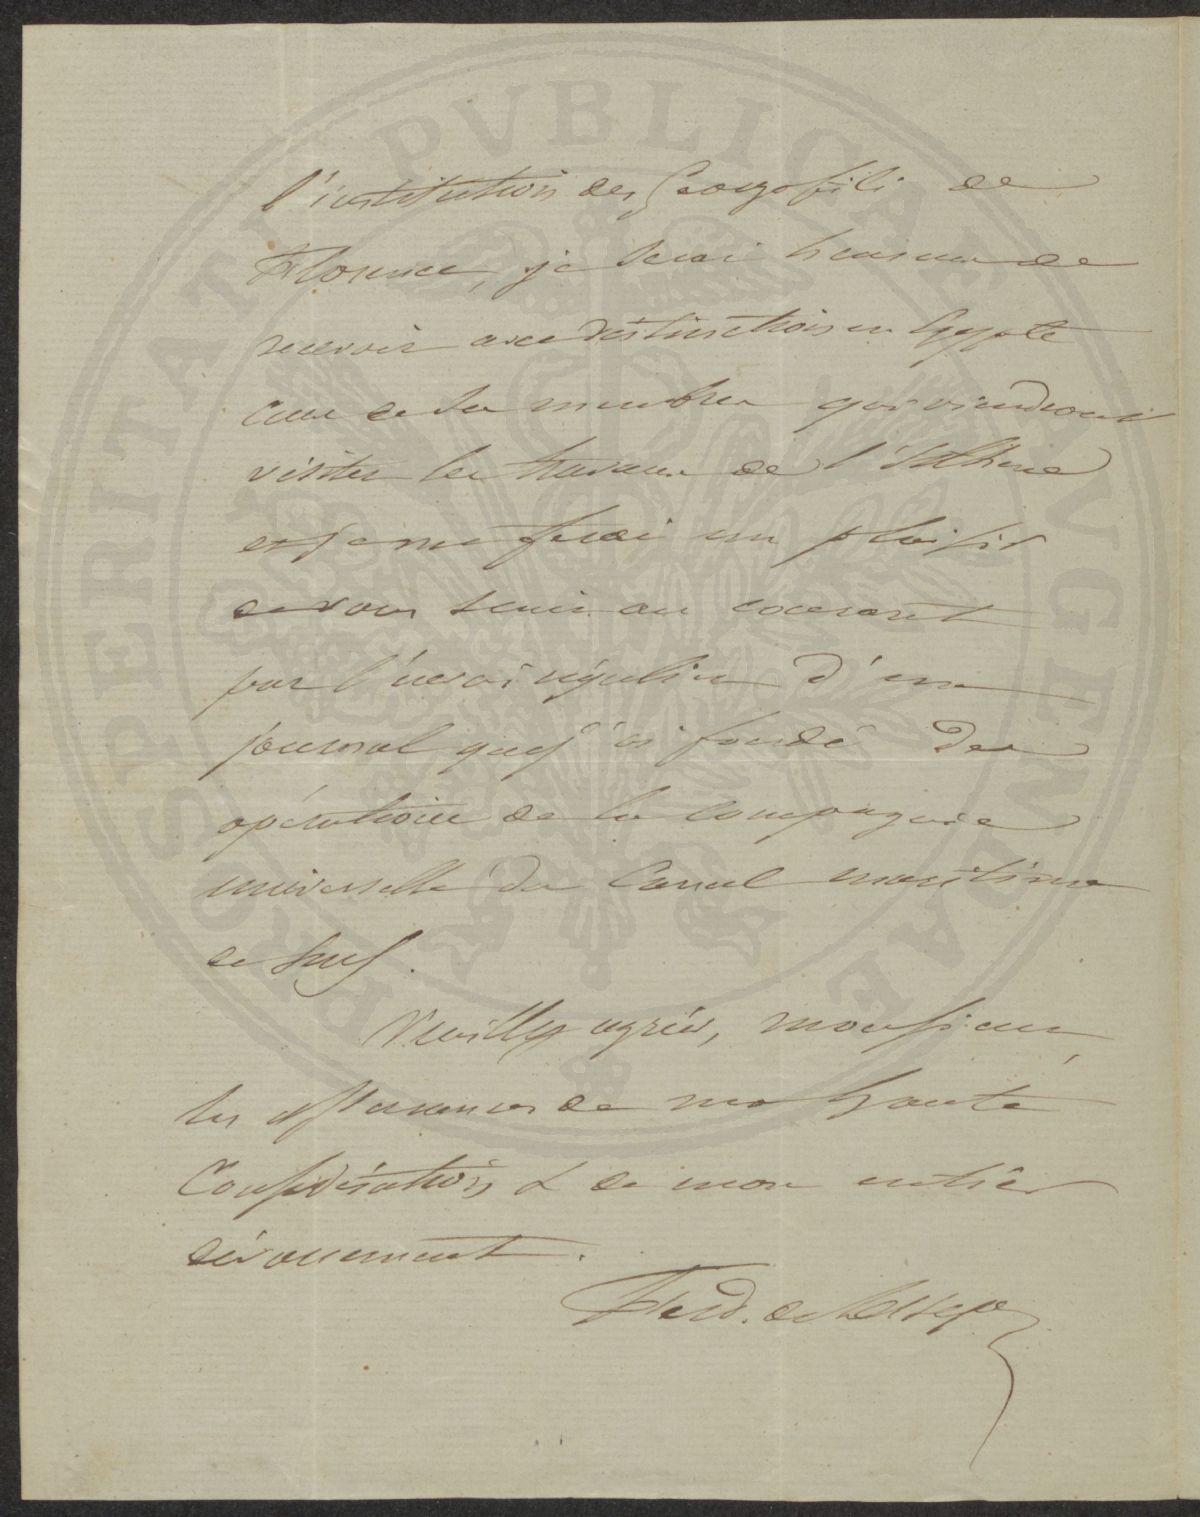 l'institution des Georgofili de
Florence, je serai heureux de
recevoir avec distinction en Egypte
ceux de ses membres qui viendront
visiter les travaux de l'Isthme
et je me ferai un plaisir
de vous tenir au courant
par l'envoi régulier d'un
journal que j'ai fondé des
opérations de la Compagnie
universelle du Canal maritime
de Suez.
Veuillez agréer, monsieur,
les assurances de ma haute
Considération & de mon entier
dévouement.
Ferd. de Lesseps
PROSPERITATI PVBLICAE AVGENDAE